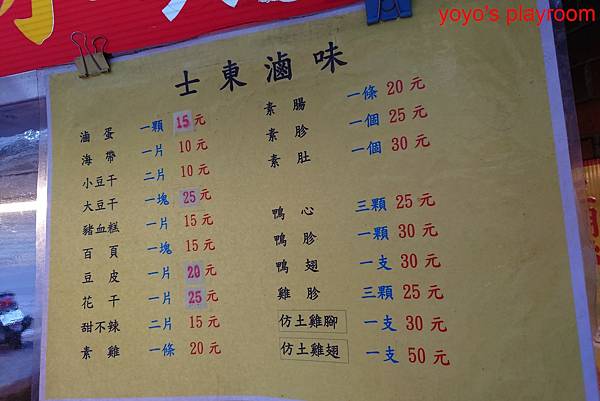 yoyo's playroom
士東滷味
滷蛋 一顆 15元
海帶 一片 10元
小豆干 二片 10元
大豆干 一塊 25元
豬血糕 一片 15元
百頁 一塊 15元
豆皮 一片 20元
花干 一片 25元
甜不辣 二片 15元
素雞 一條 20元
素腸 一條 20元
素胗 一個 25元
素肚 一個 30元
鴨心 三顆 25元
鴨胗 一顆 30元
鴨翅 一支 30元
雞胗 三顆 25元
仿土雞腳 一支 30元
仿土雞翅 一支 50元